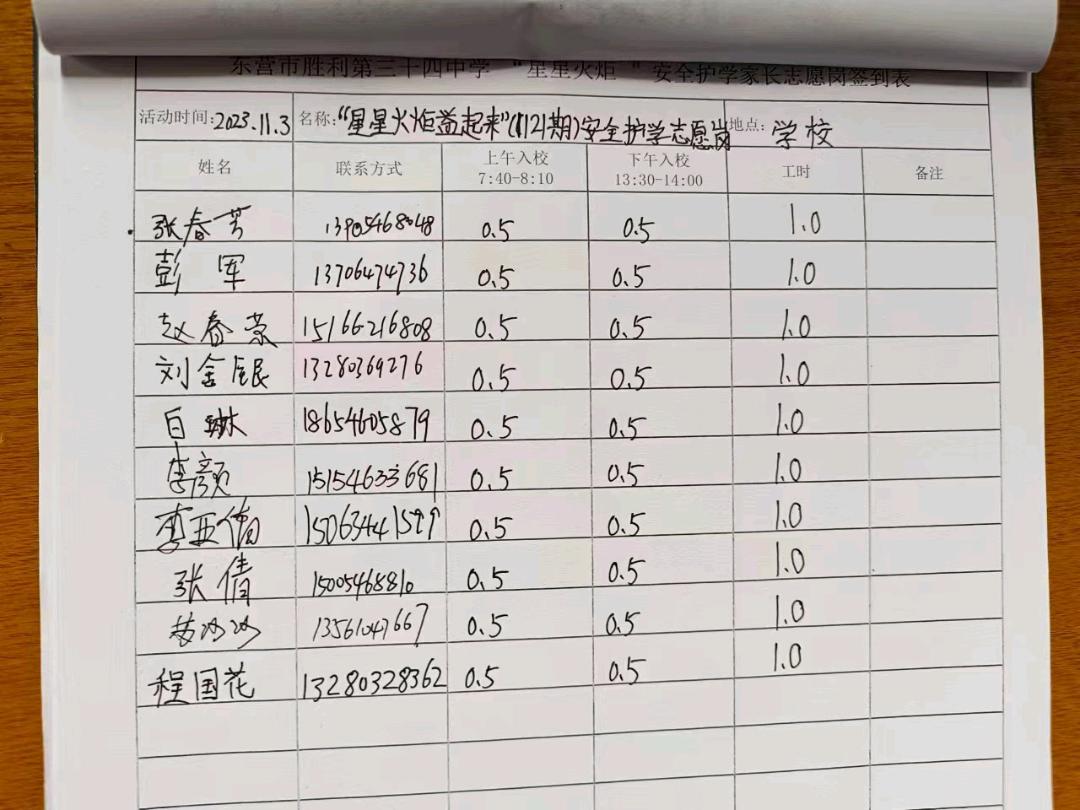 东营市胜利第三十四中学 “星星火炬 ”安全护学家长志愿岗签到表
活动时间:2023.11.3 名称:“星星火炬益起来”(1121期)安全护学志愿岗 地点: 学校
姓名 联系方式 上午入校 7:40-8:10 下午入校 13:30-14:00 工时 备注
张春芳 13905468048 0.5 0.5 1.0
彭军 13706474736 0.5 0.5 1.0
赵春荣 15166216808 0.5 0.5 1.0
刘金银 13280369276 0.5 0.5 1.0
白琳 18654605879 0.5 0.5 1.0
李颜 15154633681 0.5 0.5 1.0
李亚倩 0.5 0.5 1.0
张倩 15005468810 0.5 0.5 1.0
13561047667 0.5 0.5 1.0
程国花 13280328362 0.5 0.5 1.0